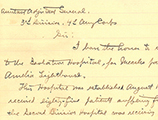 Assistant Adjutant General.
3rd Division, 4th Army Corps
Sir:
I have the honor to
to the Isolation Hospital, for
This Hospital was established August
received eighty-five patients suffering f
the Second Division Hospital was receiving